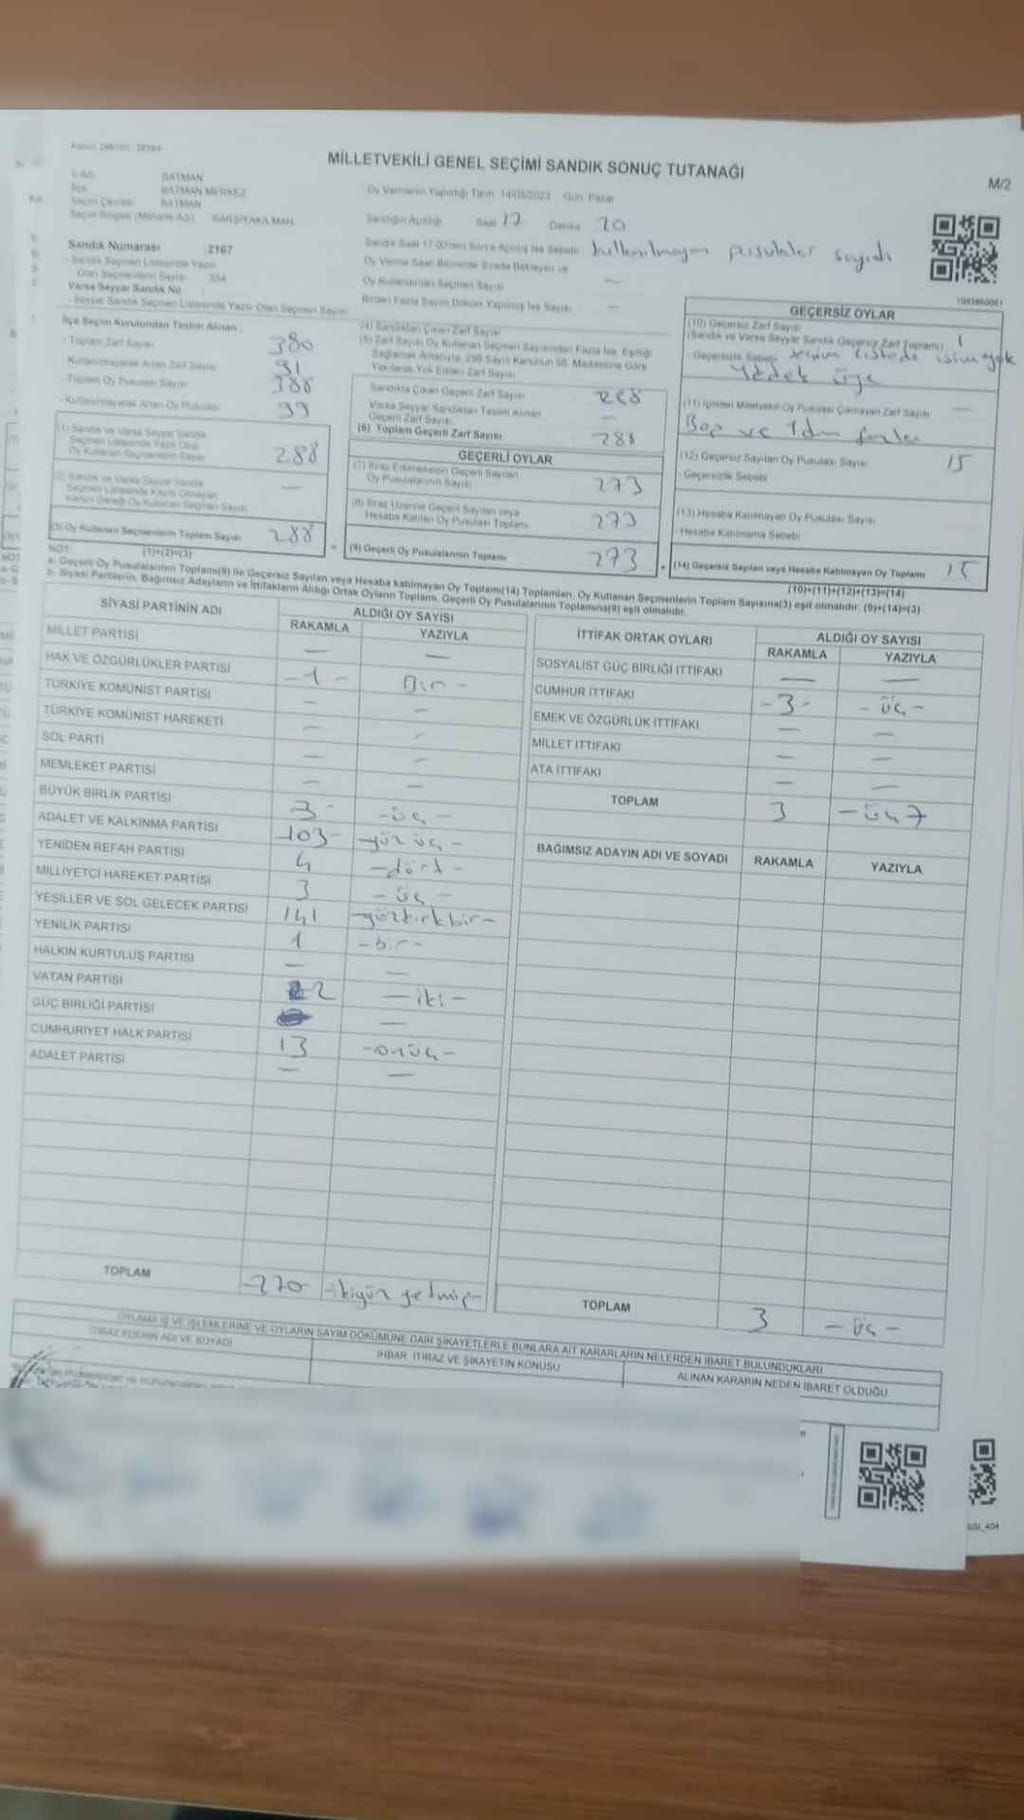 MİLLETVEKİLİ GENEL SEÇİMİ SANDIK SONUÇ TUTANAĞI
M/2
BATMAN
İlçe BATMAN MERKEZ
Seçim Çevresi BATMAN
KARŞIYAKA MAH.
Oy Vermenin Yapıldığı Tarih 14/05/2023 Gün Pazar
Sandığın Açıldığı Saat 17 Dakika 20
Sandık Numarası 2167
Sandık Seçmen Listesinde Yazılı
Olan Seçmenlerin Sayısı 354
Varsa Seyyar Sandık No
Seyyar Sandık Seçmen Listesinde Yazılı Olan Seçmen Sayısı
Sandık Saat 17:00'den Sonra Açılmış İse Sebebi kullanılmayan pusulalar sayıdı
Oy Verme Saati Bitiminde Sırada Bekleyen ve
Oy Kullandırılan Seçmen Sayısı —
Birden Fazla Sayım Döküm Yapılmış İse Sayısı —
İlçe Seçim Kurulundan Teslim Alınan
Toplam Zarf Sayısı 380
Kullanılmayarak Artan Zarf Sayısı 91
Toplam Oy Pusulası Sayısı 388
Kullanılmayarak Artan Oy Pusulası 99
(1) Sandık ve Varsa Seyyar Sandık
Seçmen Listesinde Yazılı Olup
Oy Kullanan Seçmenlerin Sayısı 288
(2) Sandık ve Varsa Seyyar Sandık
Seçmen Listesinde Kaydı Olmayan
Kanun Gereği Oy Kullanan Seçmen Sayısı —
(3) Oy Kullanan Seçmenlerin Toplam Sayısı 288
(1)+(2)=(3)
(4) Sandıktan Çıkan Zarf Sayısı
(5) Zarf Sayısı Oy Kullanan Seçmen Sayısından Fazla İse, Eşitliği
Sağlamak Amacıyla, 298 Sayılı Kanunun 98. Maddesine Göre
Yakılarak Yok Edilen Zarf Sayısı
Sandıkta Çıkan Geçerli Zarf Sayısı 288
Varsa Seyyar Sandıktan Teslim Alınan
Geçerli Zarf Sayısı
(6) Toplam Geçerli Zarf Sayısı 288
GEÇERLİ OYLAR
(7) İtiraz Edilmeksizin Geçerli Sayılan
Oy Pusulalarının Sayısı 273
(8) İtiraz Üzerine Geçerli Sayılan veya
Hesaba Katılan Oy Pusulası Toplamı 273
(9) Geçerli Oy Pusulalarının Toplamı 273
GEÇERSİZ OYLAR
(10) Geçersiz Zarf Sayısı
(Sandık ve Varsa Seyyar Sandık Geçersiz Zarf Toplamı) 1
Geçersizlik Sebebi seçim listede ismi yok
Yedek üye
(11) İçinden Milletvekili Oy Pusulası Çıkmayan Zarf Sayısı —
Boş ve 1den fazla
(12) Geçersiz Sayılan Oy Pusulası Sayısı 15
Geçersizlik Sebebi
(13) Hesaba Katılmayan Oy Pusulası Sayısı
Hesaba Katılmama Sebebi
(14) Geçersiz Sayılan veya Hesaba Katılmayan Oy Toplamı 15
(10)+(11)+(12)+(13)=(14)
NOT:
a- Geçerli Oy Pusulalarının Toplamı(9) ile Geçersiz Sayılan veya Hesaba katılmayan Oy Toplamı(14) Toplamları, Oy Kullanan Seçmenlerin Toplam Sayısına(3) eşit olmalıdır. (9)+(14)=(3)
b- Siyasi Partilerin, Bağımsız Adayların ve İttifakların Aldığı Ortak Oyların Toplamı, Geçerli Oy Pusulalarının Toplamına(9) eşit olmalıdır.
SİYASİ PARTİNİN ADI ALDIĞI OY SAYISI
RAKAMLA YAZIYLA
MİLLET PARTİSİ — —
HAK VE ÖZGÜRLÜKLER PARTİSİ -1- Bir -
TÜRKİYE KOMÜNİST PARTİSİ — —
TÜRKİYE KOMÜNİST HAREKETİ — —
SOL PARTİ — —
MEMLEKET PARTİSİ — —
BÜYÜK BİRLİK PARTİSİ 3- -üç-
ADALET VE KALKINMA PARTİSİ -103- -yüz üç-
YENİDEN REFAH PARTİSİ 4 -dört-
MİLLİYETÇİ HAREKET PARTİSİ 3 -üç-
YEŞİLLER VE SOL GELECEK PARTİSİ 141 -yüzkırkbir-
YENİLİK PARTİSİ 1 -bir-
HALKIN KURTULUŞ PARTİSİ — —
VATAN PARTİSİ 2 -iki-
GÜÇ BİRLİĞİ PARTİSİ —
CUMHURİYET HALK PARTİSİ 13 -onüç-
ADALET PARTİSİ — —
TOPLAM -270 -ikiyüz yetmiş-
İTTİFAK ORTAK OYLARI ALDIĞI OY SAYISI
RAKAMLA YAZIYLA
SOSYALİST GÜÇ BİRLİĞİ İTTİFAKI — —
CUMHUR İTTİFAKI -3- -üç-
EMEK VE ÖZGÜRLÜK İTTİFAKI — —
MİLLET İTTİFAKI — —
ATA İTTİFAKI — —
TOPLAM 3 -üç
BAĞIMSIZ ADAYIN ADI VE SOYADI RAKAMLA YAZIYLA
TOPLAM 3 -üç-
OYLAMA İŞ VE İŞLEMLERİNE VE OYLARIN SAYIM DÖKÜMÜNE DAİR ŞİKAYETLERLE BUNLARA AİT KARARLARIN NELERDEN İBARET BULUNDUKLARI
İTİRAZ EDENİN ADI VE SOYADI
İHBAR, İTİRAZ VE ŞİKAYETİN KONUSU
ALINAN KARARIN NEDEN İBARET OLDUĞU